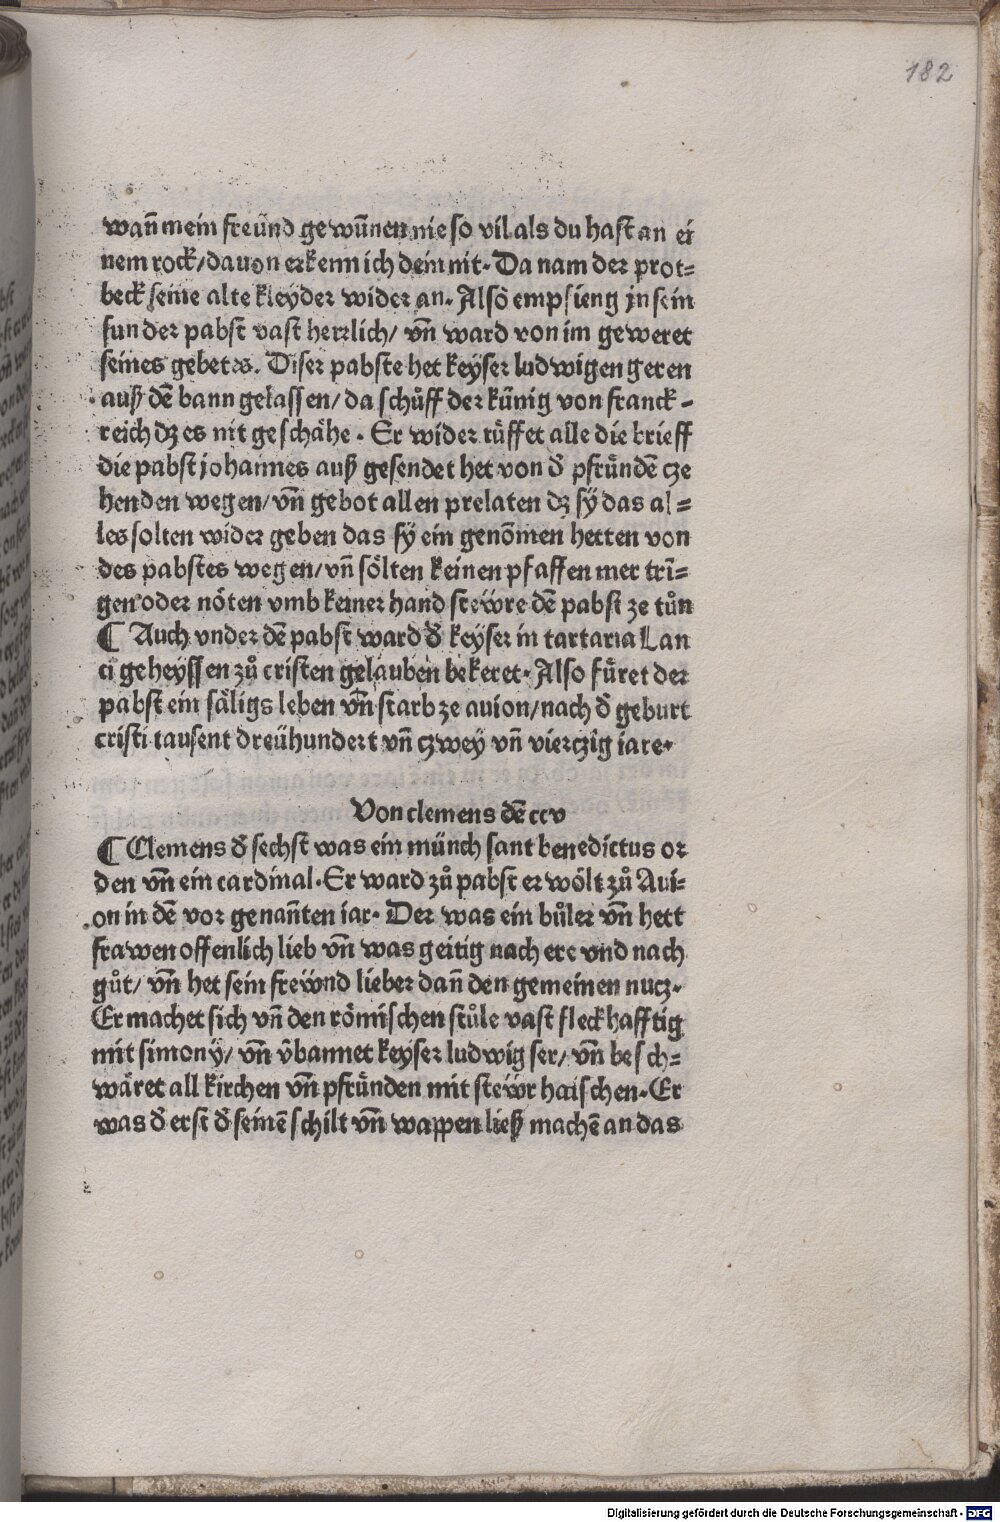 182
wañ mein freünd gewũnen nie so vil als du hast an ei
nem rock/dauon erkenn ich dein nit. Da nam der prot⸗
beck seine alte kleyder wider an. Also empfieng jn sein
sun der pabst vast herrlich/ vñ ward von im geweret
seines gebetes. Diser pabste het keyser ludwigen geren
auß dẽ bann gelassen/ da schůff der künig von franck⸗
reich dz es nit geschähe. Er wider růffet alle die brieff
die pabst johannes auß gesendet het von d̕ pfründẽ cze
henden wegen/ vñ gebot allen prelaten dz sÿ das al⸗
les solten wider geben das sÿ ein genõmen hetten von
des pabstes wegen/ vñ sölten keinen pfaffen mer trĩ⸗
gen oder nöten vmb keiner hand steẅre dẽ pabst ze tůn
¶ Auch vnder dẽ pabst ward d̕ keyser in tartaria Lan
ci geheyssen zů cristen gelauben bekeret. Also fůret der
pabst ein säligs leben vñ starb ze auion/ nach d̕ geburt
cristi tausent dreühundert vñ czweÿ vñ vierczig iare.
Von clemens dẽ ccv
¶ Clemens d̕ sechst was ein münch sant benedictus or
den vñ ein cardinal. Er ward zů pabst erwölt zů Aui⸗
on in dẽ vor genañten iar. Der was ein bůler vñ hett
frawen offenlich lieb vñ was geitig nach ere vnd nach
gůt/ vñ het sein freẅnd lieber dañ den gemeinen nucz.
Er machet sich vñ den römischen stůle vast fleckhafftig
mit simonÿ/ vñ v̕bannet keyser ludwig ser/ vñ besch⸗
wäret all kirchen vñ pfründen mit steẅr haischen. Er
was d̕ erst d̕ seinẽ schilt vñ wappen ließ machẽ an das
Digitalisierung gefördert durch die Deutsche Forschungsgemeinschaft - DFG